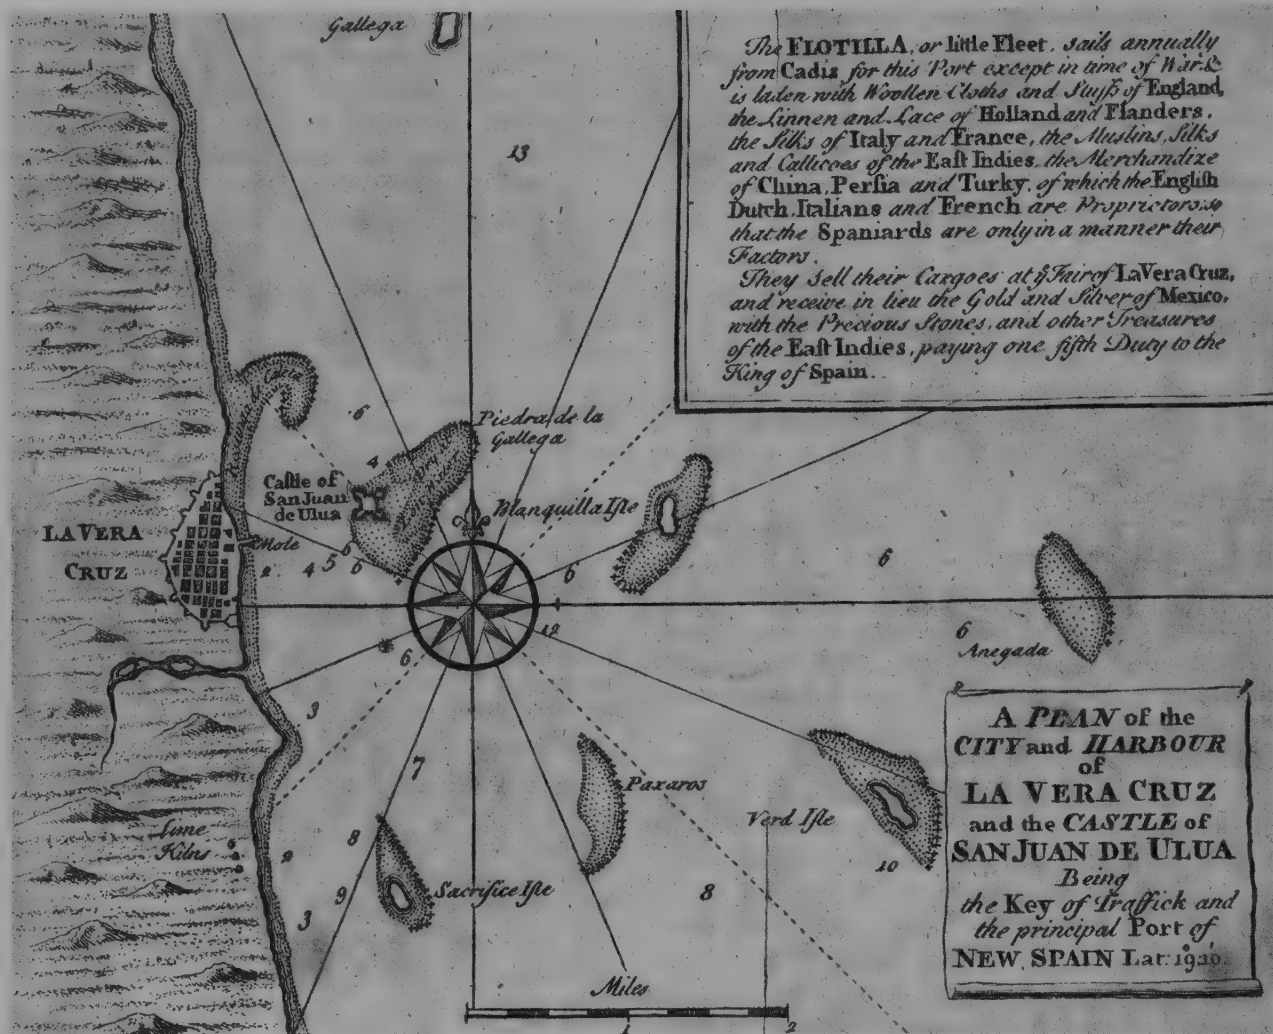 Gallega
The FLOTILLA, or little Fleet, sails annually
from Cadiz for this Port except in time of War &
is laden with Woollen Cloths and Stuffs of England,
the Linnen and Lace of Holland and Flanders,
the Silks of Italy and France, the Muslins, Silks
and Callicoes of the Eaſt Indies, the Merchandize
of China, Perſia and Turky, of which the Engliſh
Dutch, Italians and French are Proprietors, so
that the Spaniards are only in a manner their
Factors.
They Sell their Cargoes at yͤ Fair of La Vera Cruz,
and receive in lieu the Gold and Silver of Mexico,
with the Precious Stones, and other Treasures
of the Eaſt Indies, paying one fifth Duty to the
King of Spain.
13
6
4
Piedra de la
Gallega
Caſtle of
San Juan
de Ulua
Blanquilla Iſle
LA VERA
CRUZ
Mole
2
4
5
6
6
6
6
12
6
6
Anegada
3
7
Paxaros
Verd Iſle
10
lime
Kilns
8
2
9
3
Sacrifice Iſle
8
A PLAN of the
CITY and HARBOUR
of
LA VERA CRUZ
and the CASTLE of
SAN JUAN DE ULUA
Being
the Key of Traffick and
the principal Port of
NEW SPAIN Lat:
Miles
1
2